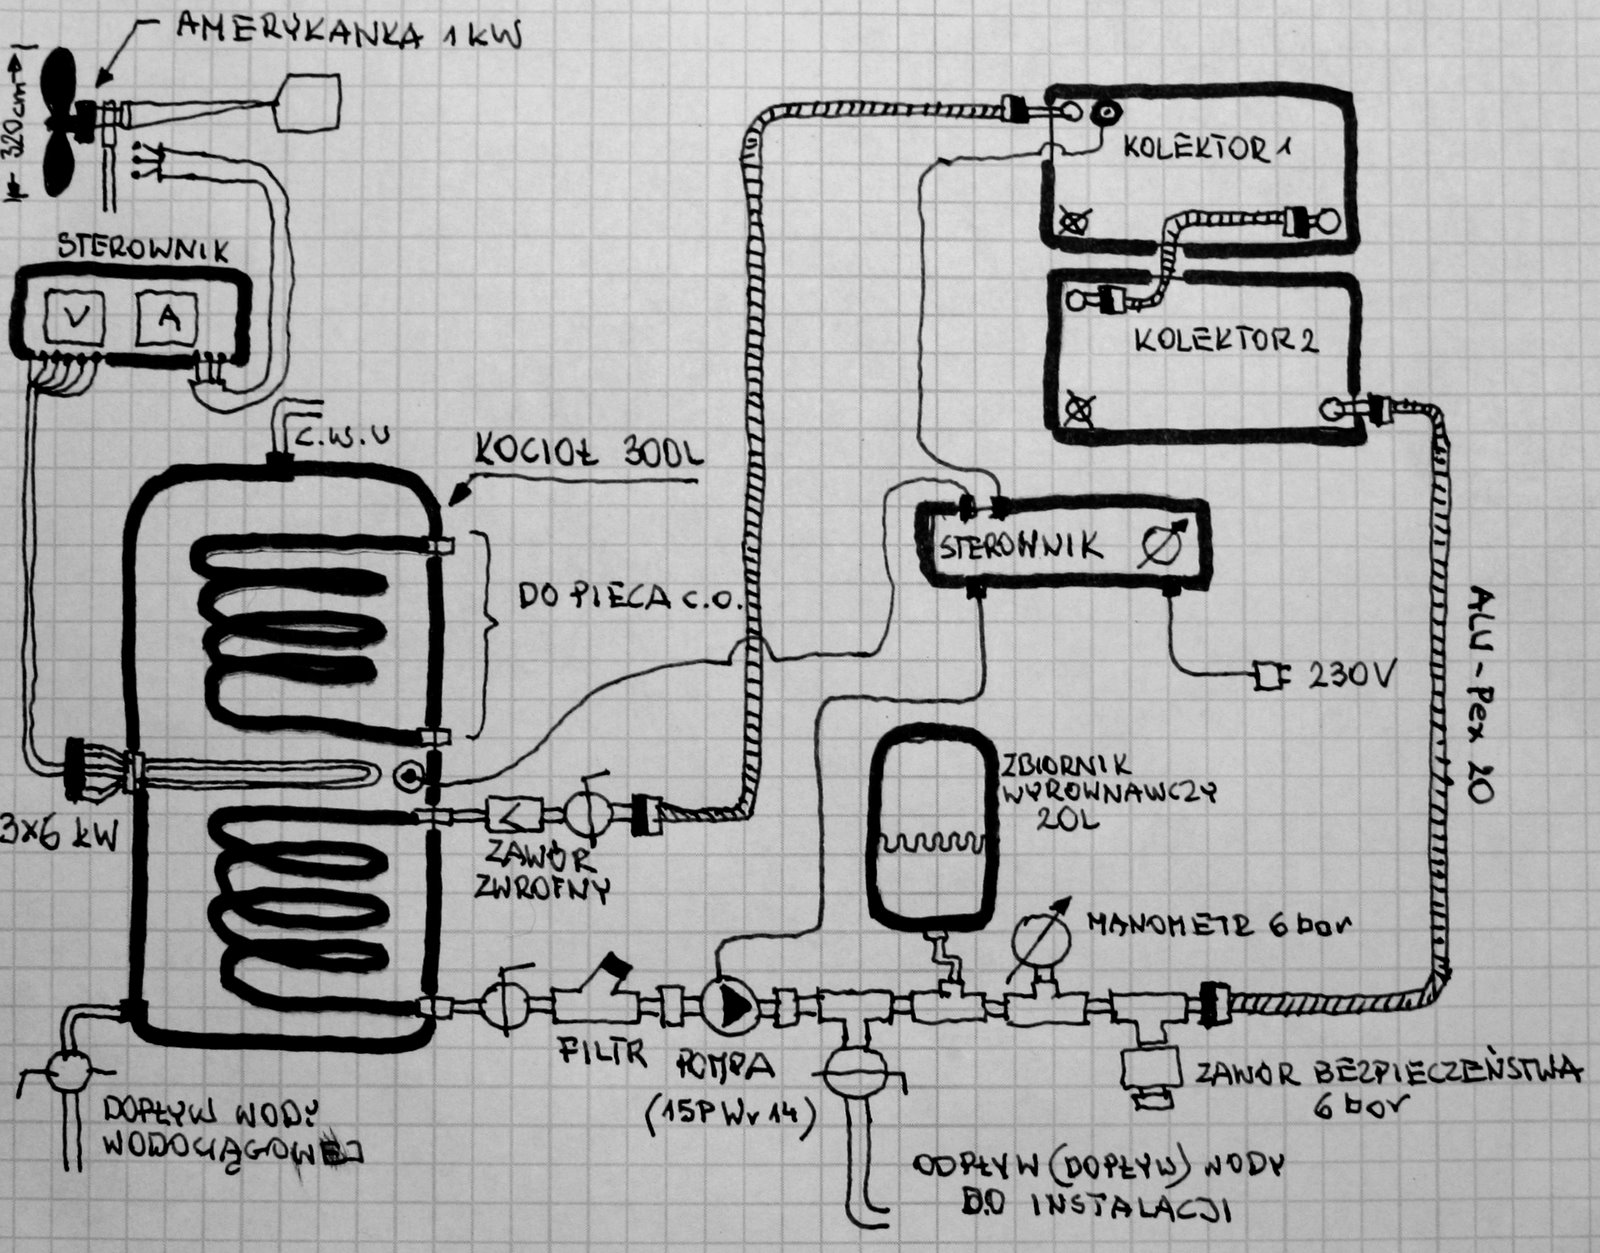 AMERYKANKA 1 KW
320cm
STEROWNIK
V A
C.W.U
KOCIOŁ 300L
DO PIECA C.O.
3x6 kW
ZAWÓR
ZWROTNY
KOLEKTOR 1
KOLEKTOR 2
STEROWNIK
230V
ALU-Pex 20
ZBIORNIK
WYRÓWNAWCZY
20L
MANOMETR 6 bar
FILTR
POMPA
(15PWr14)
ZAWÓR BEZPIECZEŃSTWA
6 bar
DOPŁYW WODY
WODOCIĄGOWEJ
ODPŁYW (DOPŁYW) WODY
DO INSTALACJI